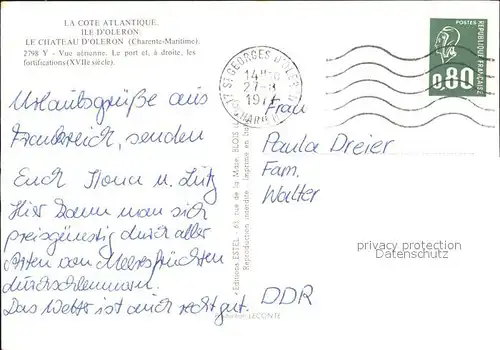 LA COTE ATLANTIQUE.
ILE D'OLERON.
LE CHATEAU D'OLERON (Charente-Maritime).
2798 Y - Vue aérienne. Le port et, à droite, les
fortifications (XVIIe siècle).
POSTES
REPUBLIQUE FRANÇAISE
0,80
17 ST GEORGES D'OLERON
14H
27-8
Urlaubsgrüße aus
Frankreich, senden
Euch Ilona u. Lutz
Hier kann man sich
preisgünstig durch aller
Arten von Meeresfrüchten
durchschlemmen.
Das Wetter ist auch recht gut.
Editions ESTEL - 63, rue de la Mare, BLOIS
Reproduction interdite - Imprimé en
LECONTE
Frau
Paula Dreier
Fam.
Walter
DDR
privacy protection
Datenschutz